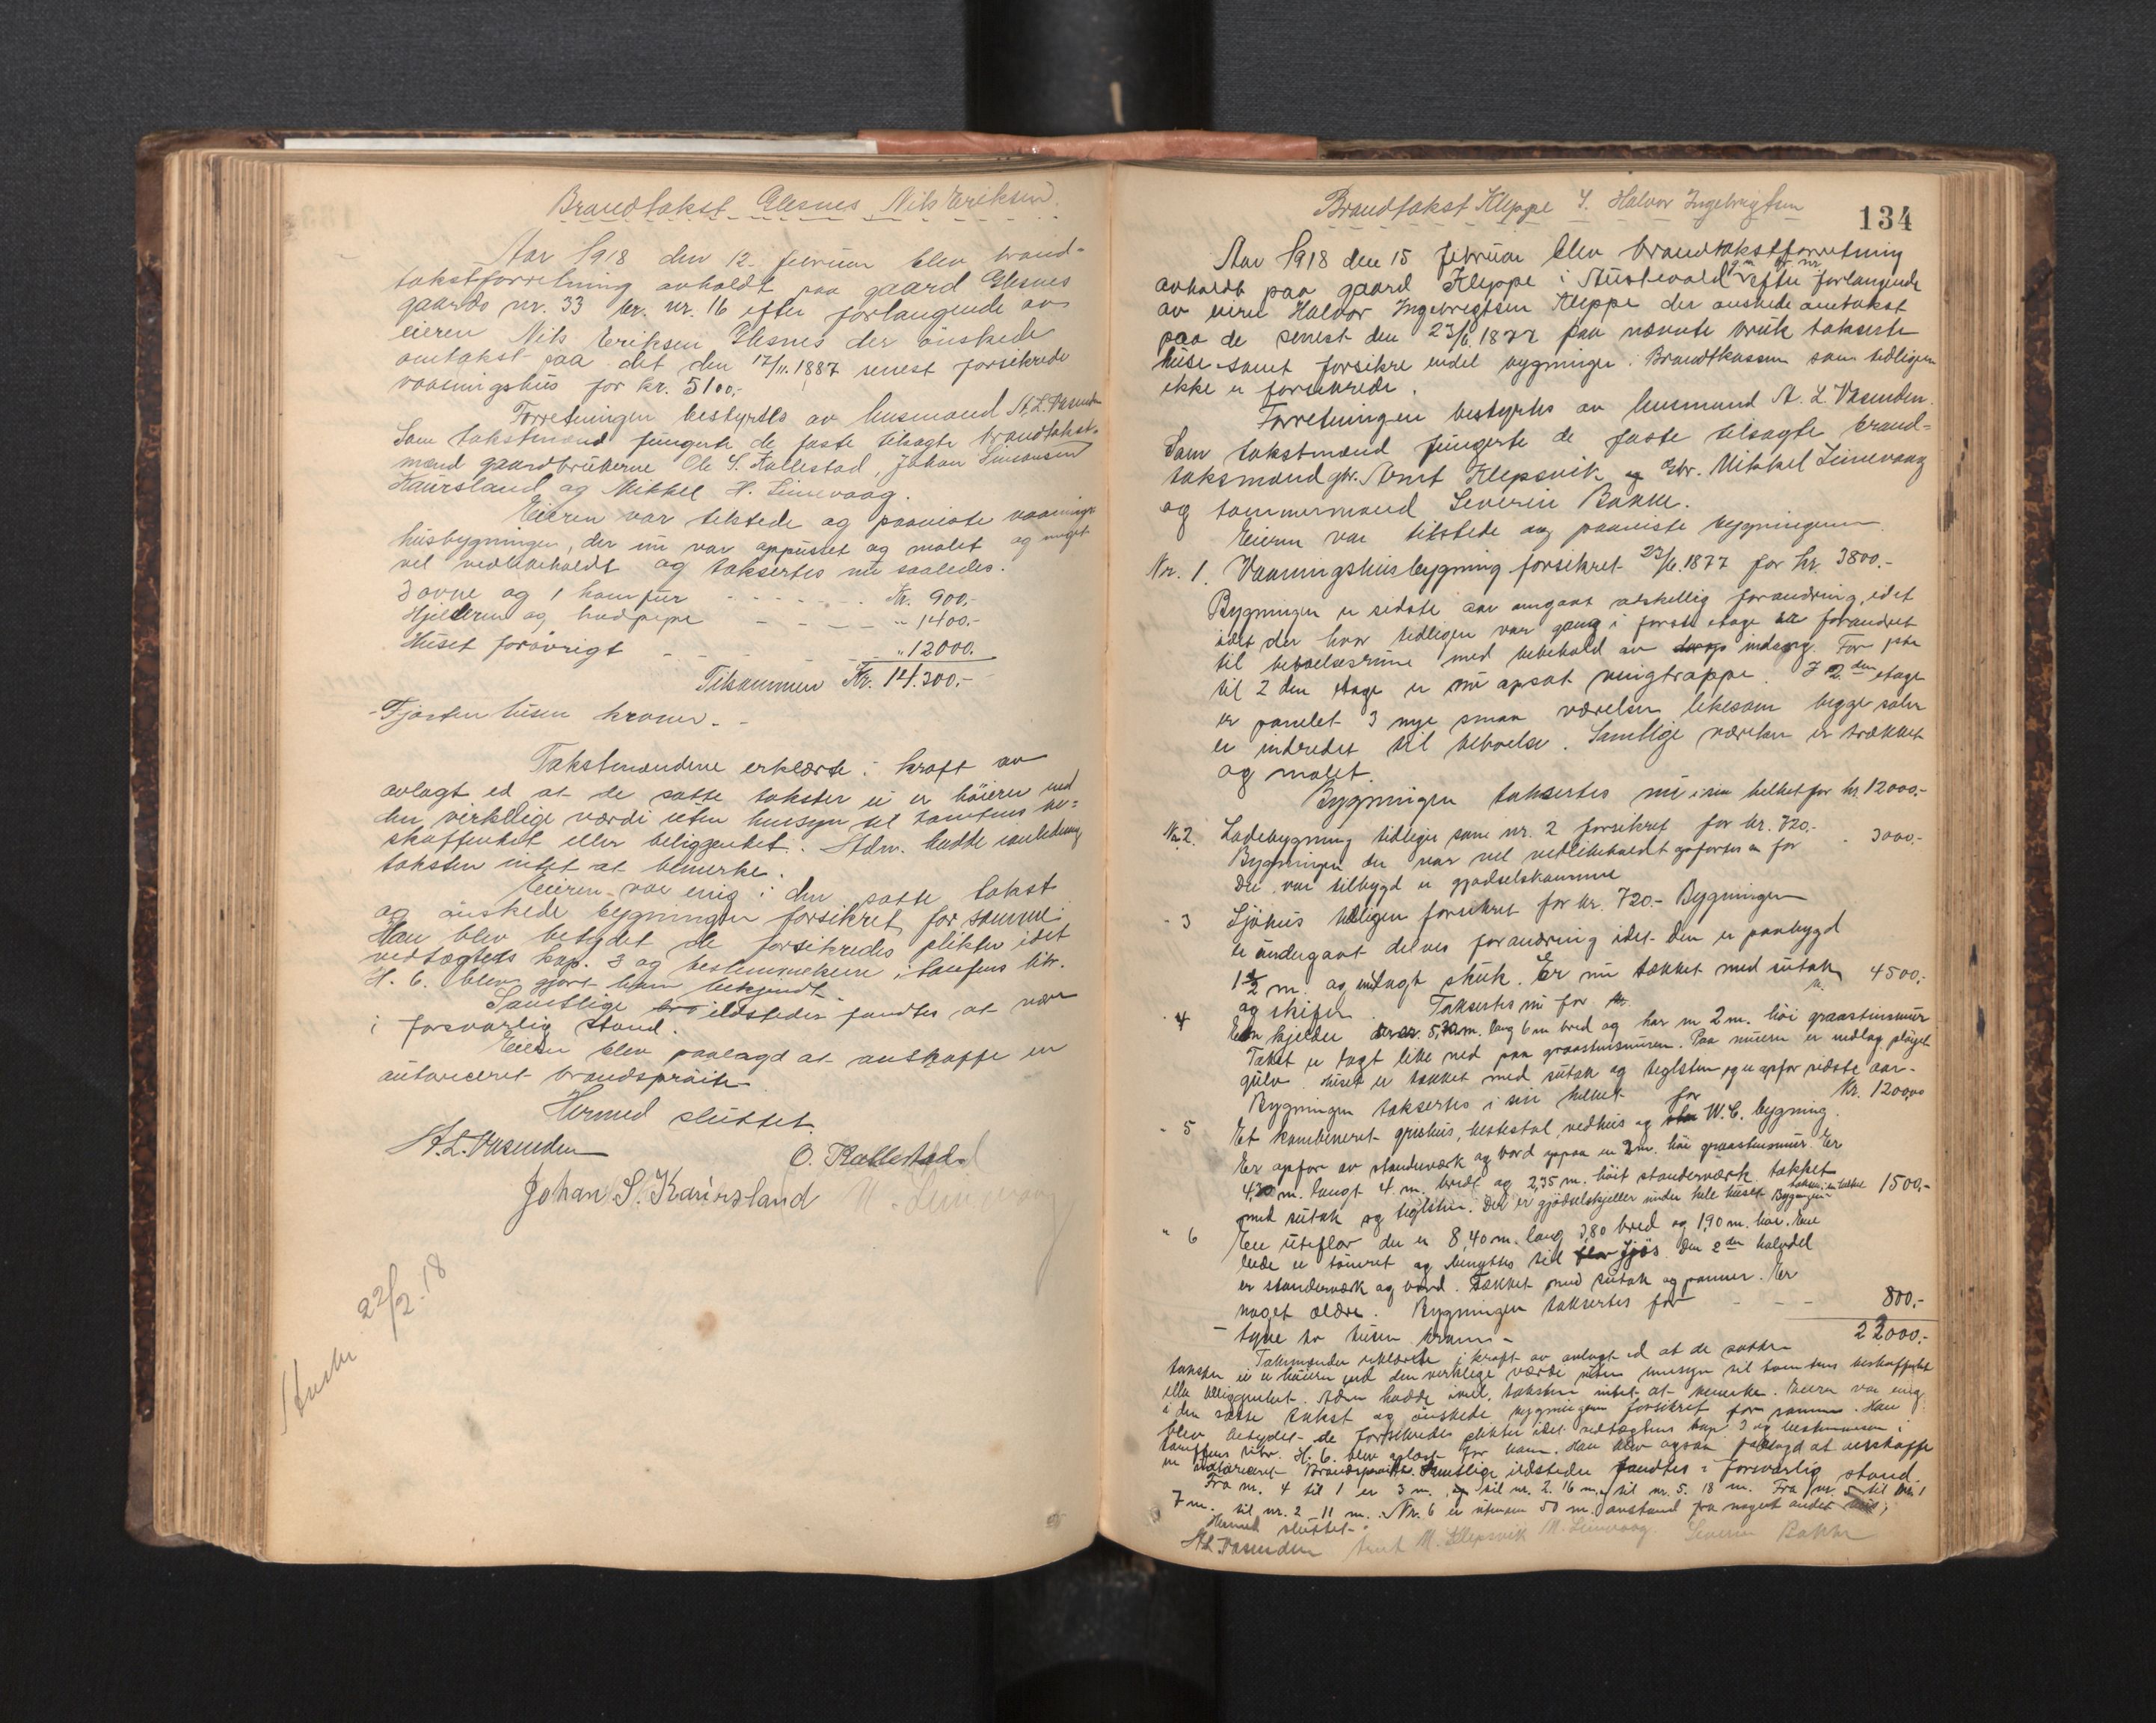 Brandtakst Glesnes Nils Eriksen.
Aar 1918 den 12. februar blev brand-
takstforretning avholdt paa gaard Glesnes
gaards nr. 33 br. nr. 16 efter forlangende av
eieren Nils Eriksen Glesnes der ønskede
omtakst paa det den 17/11.1887 senest forsikrede
vaaningshus for kr. 5100,-
Forretningen bestyrtes av lensmand A. L. Vasenden
Som takstmænd fungerte de faste tilsagte brandtakst-
mænd gaardbrukerne Ole S. Kallestad, Johan Simonsen
Kaursland og Mikkel H. Limevaag.
Eieren var tilstede og paaviste vaanings-
husbygningen, der nu var oppusset og malet og meget
vel vedlikeholdt og taksertes nu saaledes.
3 ovne og 1 komfur - - - - - - Kr. 900,-
Hjelderen og hudpipe - - - - " 1400.-
Huset forøvrigt - - - - " 12000.
Tilsammen Kr. 14.300,-
- Fjorten tusen kroner. -
Takstmændene erklærte i kraft av
avlagt ed at de satte takster ei er høiere end
den virkelige værdi uten hensyn til tomtens be-
skaffenhet eller beliggenhet. Adm. hadde i anledning
taksten intet at bemerke.
Eieren var enig i den satte takst
og ønskede bygningen forsikret for samme.
Han blev betydet de forsikredes plikter idet
vedtægtets kap. 3 og bestemmelsene i tariffens litr.
H. 6. blev gjort ham bekjendt.
Samtlige ildsteder fandtes at være
i forsvarlig stand.
Eieren blev paalagd at anskaffe en
autoriceret brandsprøite
Hermed sluttet.
A. L. Vasenden O. Kallestad
Johan S. Kaursland M. Limevaag
22/2.18
Brandtakst Kleppe S. Halvor Ingebrigtsen
134
Aar 1918 den 15 februar blev brandtakstforretning
avholdt paa gaard Kleppe i Austevold gr. nr br. nr efter forlangende
av eieren Halvor Ingebrigtsen Kleppe der ønskede omtakst
paa de senest den 23/6 1877 paa nævnte bruk takserte
huse samt forsikre endel bygninger i Brandtkassen som tidligere
ikke er forsikrede.
Forretningen bestyrtes av lensmand A. L. Vasenden.
Som takstmænd fungerte de faste tilsagte brand-
taksmænd gbr. Arnt Klepsvik og Gbr. Mikkel Limevaag
og tømmermand Severin Bakke.
Eieren var tilstede og paaviste bygningerne.
Nr. 1. Vaaningshusbygning forsikret 23/6.1877 for kr. 3800.-
Bygningen er sidste aar omgaat adskellig forandring, idet
idet der hvor tidligere var gang i første etage er forandret
til beboelsesrum med bibehold av indgang. For 1ste
til 2 den etage er nu opsat svingtrappe. I 2 den etage
er panelet 3 nye smaa værelser likesom begge saler
er indredet til beboelse. Samtlige værelser er trækket
og malet.
Bygningen taksertes nu i sin helhet for kr. 12000.-
Nr. 2. Ladebygning tidligere som nr. 2 forsikret for kr. 720.-
Bygningen der var vel vedlikeholdt opførtes for - 3000.-
Der var tilbygd en gjødselskamme
- 3 Sjøhus tidligere forsikret for kr. 720.- Bygningen
er undergaat delves forandring idet den er paabygd
1 1/2 m. og indlagt skuk. Er nu tækket med sutak
og skifer. Taksertes nu for kr. 4500.-
- 4 En kjelder 5,70 m. lang 6 m bred og har en 2 m. høi graastensmur
Taket er lagt like ned paa graastensmuren. Paa muren er indlag pløiet
gulv. Huset er tækket med sutak og teglsten og er opfør sidste aar.
Bygningen taksertes i sin helhet for Kr. 1200,00
- 5 Et kombineret grishus, hestestal, vedhus og W.C. bygning.
Er opført av standerværk og bord oppaa en 2 m. høi graastensmur. Er
4,30 m. langt 4 m. bredt og 2,35 m. høit standerværk. tækket
med sutak og teglsten. Der er gjødselskjeller under hele huset. Bygningen takser. i sin helhet 1500,-
" 6 En uteflor der er 8,40 m. lang 3,80 bred og 1,90 m. høi. Ene
lede er tømret og benyttes til fjøs. Den 2 den halvdel
er standerværk og bord. Tækket med sutak og panner. Er
noget ældre. Bygningen taksertes for - - - 800,-
- tyve to tusen kroner - 23000.-
Takstmænder erklærte i kraft av avlagt ed at de satte
takster ei er høiere end den verklige værdi uten hensyn til tomtens beskaffenhet
eller beliggenhet. Adm hadde i anl. taksten intet at bemerke. Eieren var enig
i den satte takst og ønskede bygningen forsikret for samme. Han
blev betydet de forsikredes plikter idet vedtægtens kap. 3 og bestemmelsen i
tariffens litr. H. 6. blev oplæst for ham. Han blev ogsaa paalagd at anskaffe
en autoriceret Brandsprøite. Samtlige ildsteder fandtes i forsvarlig stand.
Fra nr. 4 til 1 er 3 m. til nr. 2. 16 m., til nr. 5. 18 m. Fra nr. 5 til nr. 1
7 m. til nr. 2 11 m. Nr. 6 er utenom 50 m. avstand fra noget andet hus;
Hermed sluttet.
A L Vasenden Arnt M. Klepsvik M. Limevaag Severin Bakke